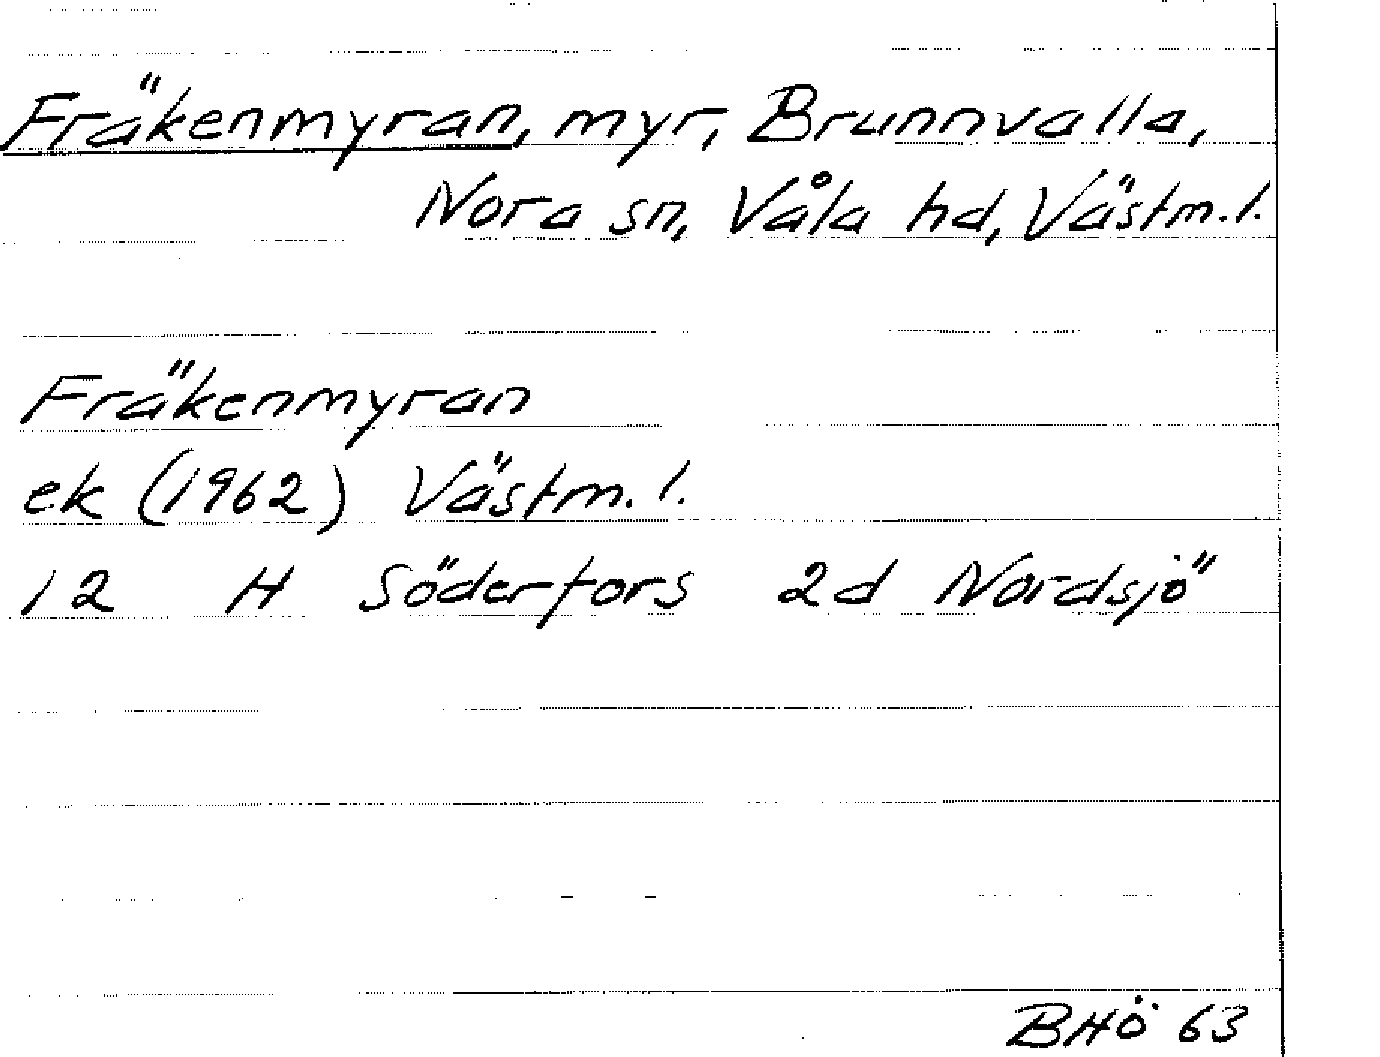 Fräkenmyran, myr, Brunnvalla,
Nora sn, Våla hd, Västm. l.
Fräkenmyran
ek (1962) Västm. l.
12 H Söderfors 2d Nordsjö
BHÖ 63